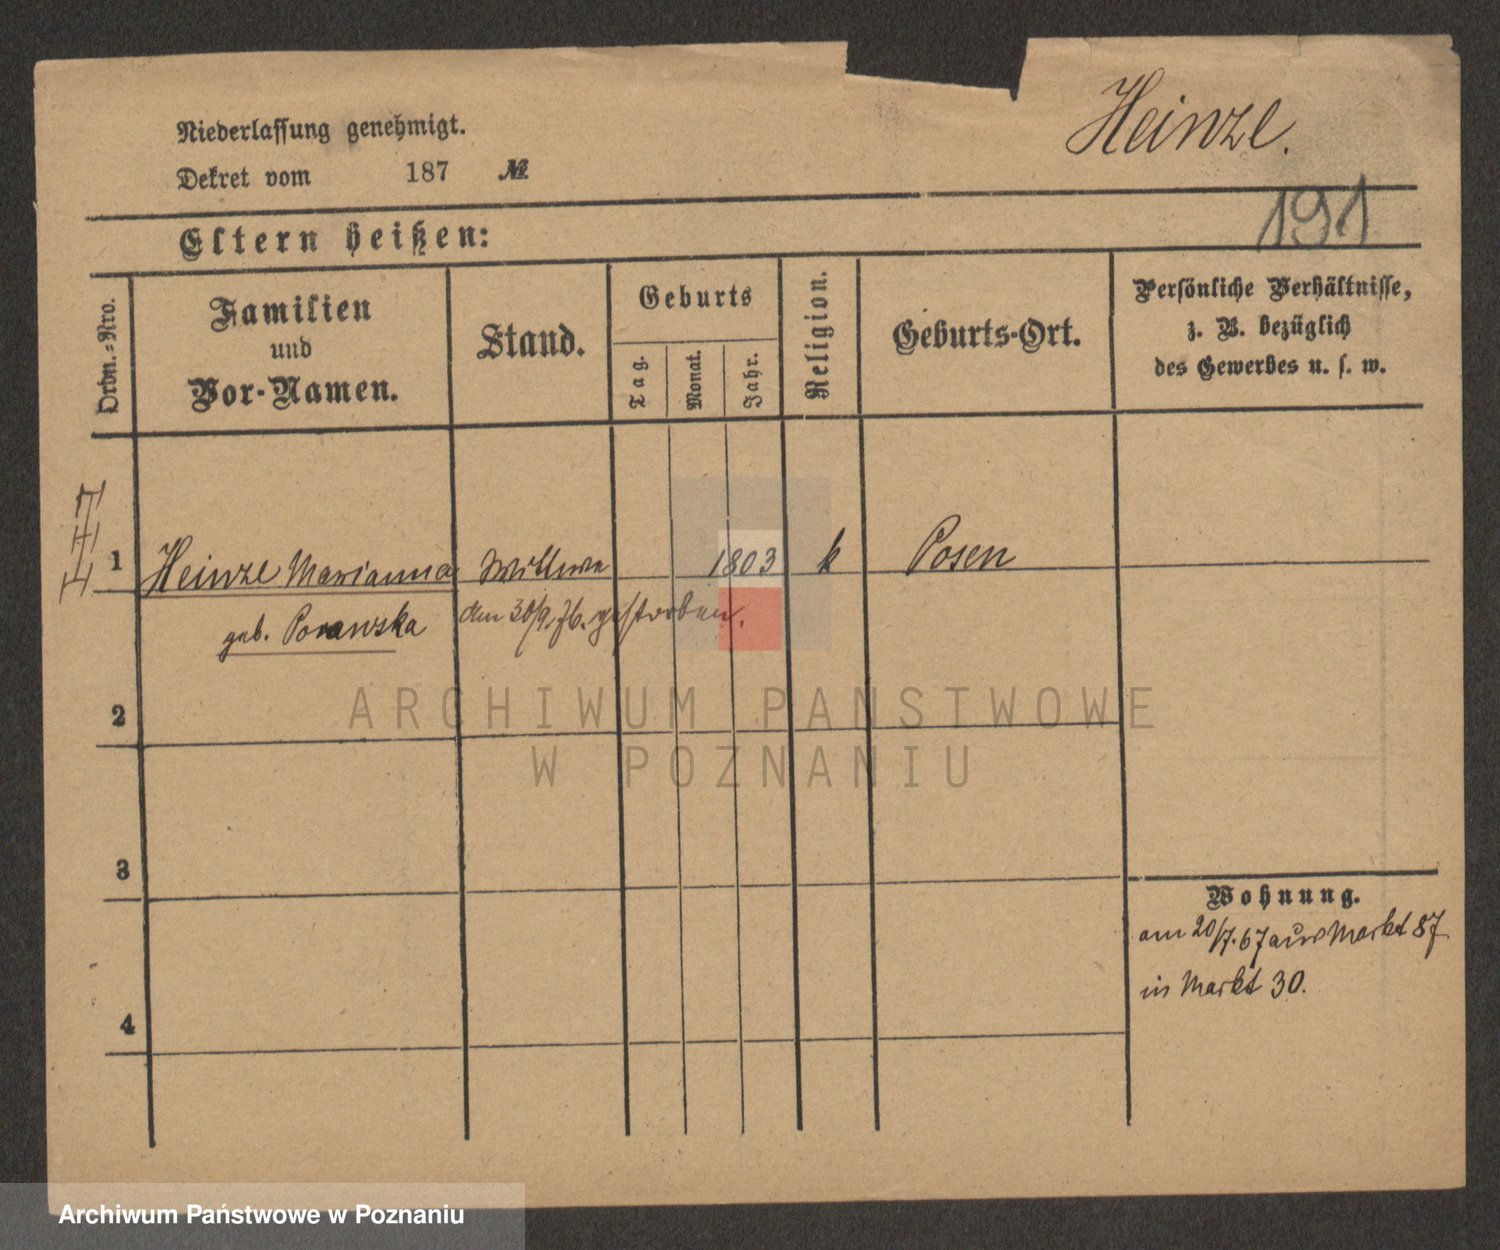 Heinze.
Niederlassung genehmigt.
Dekret vom 187 №
191
Eltern heißen:
Ordn.=Nro.
Familien
und
Vor-Namen.
Stand.
Geburts
Tag.
Monat.
Jahr.
Religion.
Geburts-Ort.
Persönliche Verhältnisse,
z. B. bezüglich
des Gewerbes u. s. w.
1 Heinze Marianna Wittwe 1803 k Posen
geb. Porawska den 30/9.76. gestorben.
2
ARCHIWUM PAŃSTWOWE
W POZNANIU
3
Wohnung.
am 20/7.67 aus Markt 87
in Markt 30.
4
Archiwum Państwowe w Poznaniu